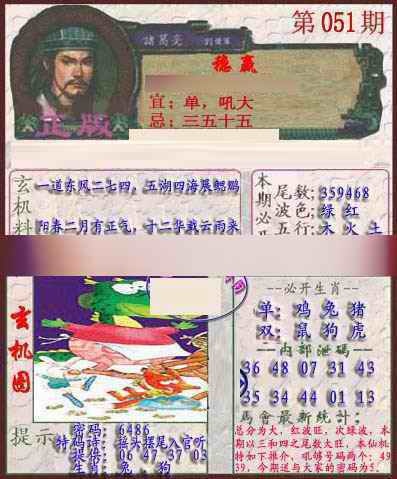 第051期
諸葛亮
劉伯溫
穩赢
正版
宜：单，吼大
忌：三五十五
玄机料
一道东风二七四，五湖四海展鲲鹏
阳春二月有正气，寸二华载云雨来
本期必开
尾数；359468
波色；绿 红
五行；木 火 土
玄机图
必开生肖
单：鸡 兔 猪
双：鼠 狗 虎
内部泄码
36 48 07 31 43
35 34 44 01 13
馬會最新统計：
总分为大，红波旺，次绿波，本
期以三和四之尾数大旺，本仙机
特如下推介，吼够号码两个：49
39，今期道与大家的密码为5．
提示
密码：6486
特码诗：摇头摆尾入官听
提供：06 47 37 03
生肖：兔．狗